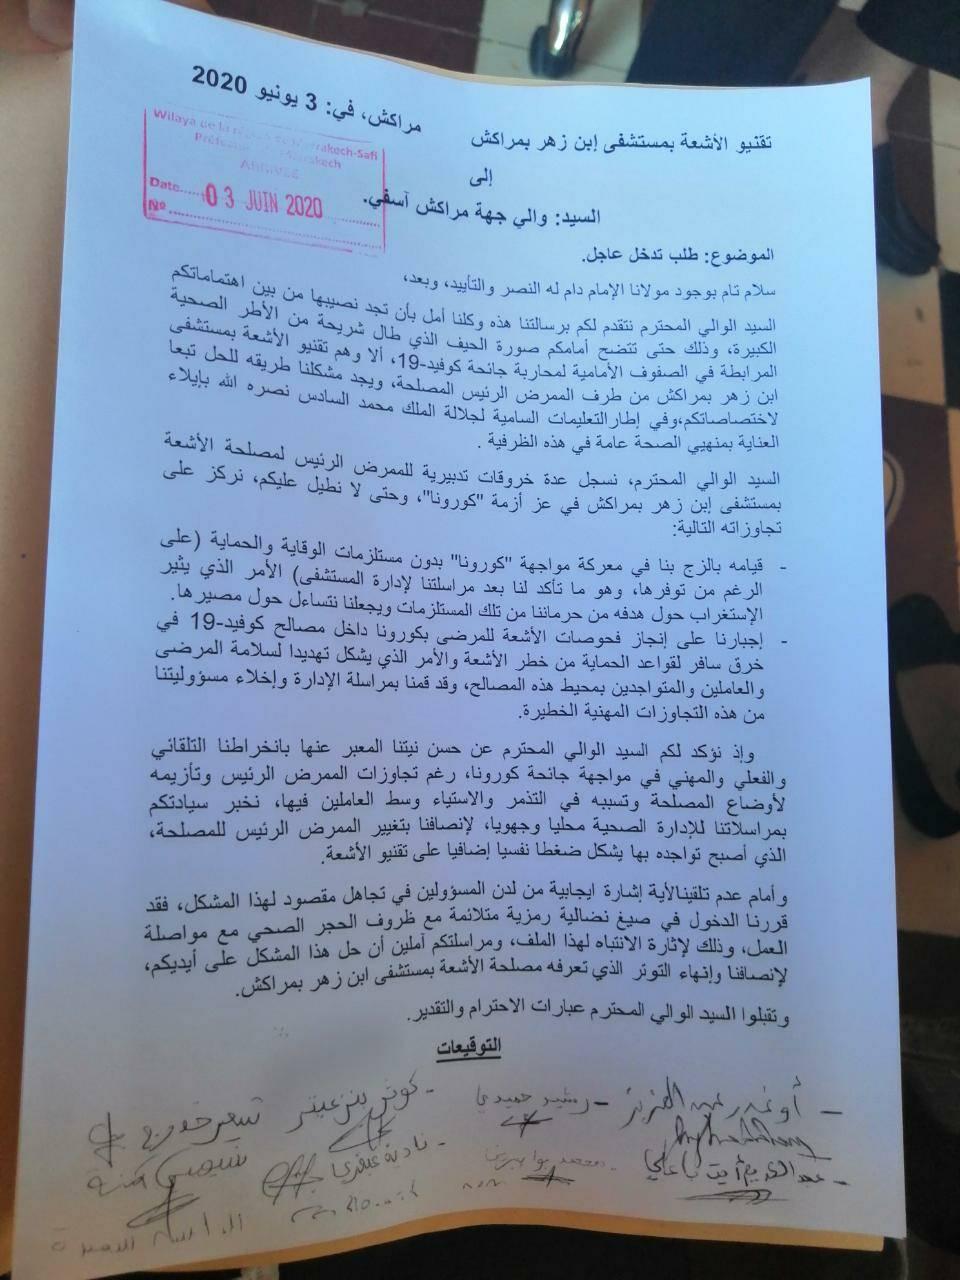 مراكش، في: 3 يونيو 2020
Wilaya de la région de Marrakech-Safi
Préfecture de Marrakech
ARRIVEE
Date..... 03 JUIN 2020
N°
تقنيو الأشعة بمستشفى إبن زهر بمراكش
إلى
السيد: والي جهة مراكش آسفي.
الموضوع: طلب تدخل عاجل.
سلام تام بوجود مولانا الإمام دام له النصر والتأييد، وبعد،
السيد الوالي المحترم نتقدم لكم برسالتنا هذه وكلنا أمل بأن تجد نصيبها من بين اهتماماتكم
الكبيرة، وذلك حتى تتضح أمامكم صورة الحيف الذي طال شريحة من الأطر الصحية
المرابطة في الصفوف الأمامية لمحاربة جائحة كوفيد-19، ألا وهم تقنيو الأشعة بمستشفى
ابن زهر بمراكش من طرف الممرض الرئيس المصلحة، ويجد مشكلنا طريقه للحل تبعا
لاختصاصاتكم،وفي إطارالتعليمات السامية لجلالة الملك محمد السادس نصره الله بإيلاء
العناية بمنهيي الصحة عامة في هذه الظرفية .
السيد الوالي المحترم، نسجل عدة خروقات تدبيرية للممرض الرئيس لمصلحة الأشعة
بمستشفى إبن زهر بمراكش في عز أزمة "كورونا"، وحتى لا نطيل عليكم، نركز على
تجاوزاته التالية:
- قيامه بالزج بنا في معركة مواجهة "كورونا" بدون مستلزمات الوقاية والحماية (على
الرغم من توفرها، وهو ما تأكد لنا بعد مراسلتنا لإدارة المستشفى) الأمر الذي يثير
الإستغراب حول هدفه من حرماننا من تلك المستلزمات ويجعلنا نتساءل حول مصيرها.
- إجبارنا على إنجاز فحوصات الأشعة للمرضى بكورونا داخل مصالح كوفيد-19 في
خرق سافر لقواعد الحماية من خطر الأشعة والأمر الذي يشكل تهديدا لسلامة المرضى
والعاملين والمتواجدين بمحيط هذه المصالح، وقد قمنا بمراسلة الإدارة وإخلاء مسؤوليتنا
من هذه التجاوزات المهنية الخطيرة.
وإذ نؤكد لكم السيد الوالي المحترم عن حسن نيتنا المعبر عنها بانخراطنا التلقائي
والفعلي والمهني في مواجهة جائحة كورونا، رغم تجاوزات الممرض الرئيس وتأزيمه
لأوضاع المصلحة وتسببه في التذمر والاستياء وسط العاملين فيها، نخبر سيادتكم
بمراسلاتنا للإدارة الصحية محليا وجهويا، لإنصافنا بتغيير الممرض الرئيس للمصلحة،
الذي أصبح تواجده بها يشكل ضغطا نفسيا إضافيا على تقنيو الأشعة.
وأمام عدم تلقينالأية إشارة ايجابية من لدن المسؤولين في تجاهل مقصود لهذا المشكل، فقد
قررنا الدخول في صيغ نضالية رمزية متلائمة مع ظروف الحجر الصحي مع مواصلة
العمل، وذلك لإثارة الانتباه لهذا الملف، ومراسلتكم آملين أن حل هذا المشكل على أيديكم،
لإنصافنا وإنهاء التوتر الذي تعرفه مصلحة الأشعة بمستشفى ابن زهر بمراكش.
وتقبلوا السيد الوالي المحترم عبارات الاحترام والتقدير.
التوقيعات
- رشيد حميدي
- نادية
- عبد الكريم أيت باعلي